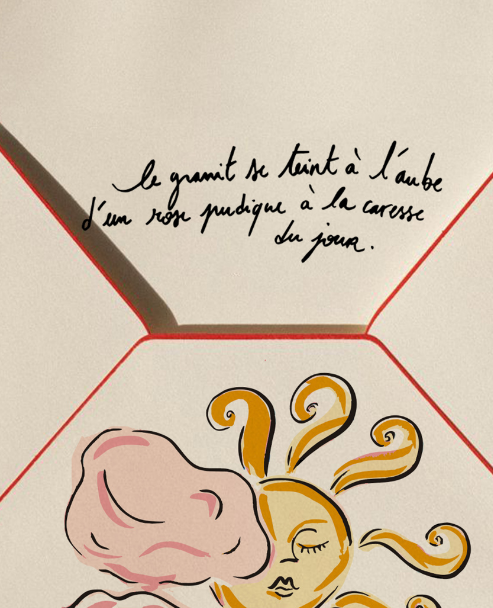 le granit se teint à l'aube
d'un rose pudique à la caresse
du jour.